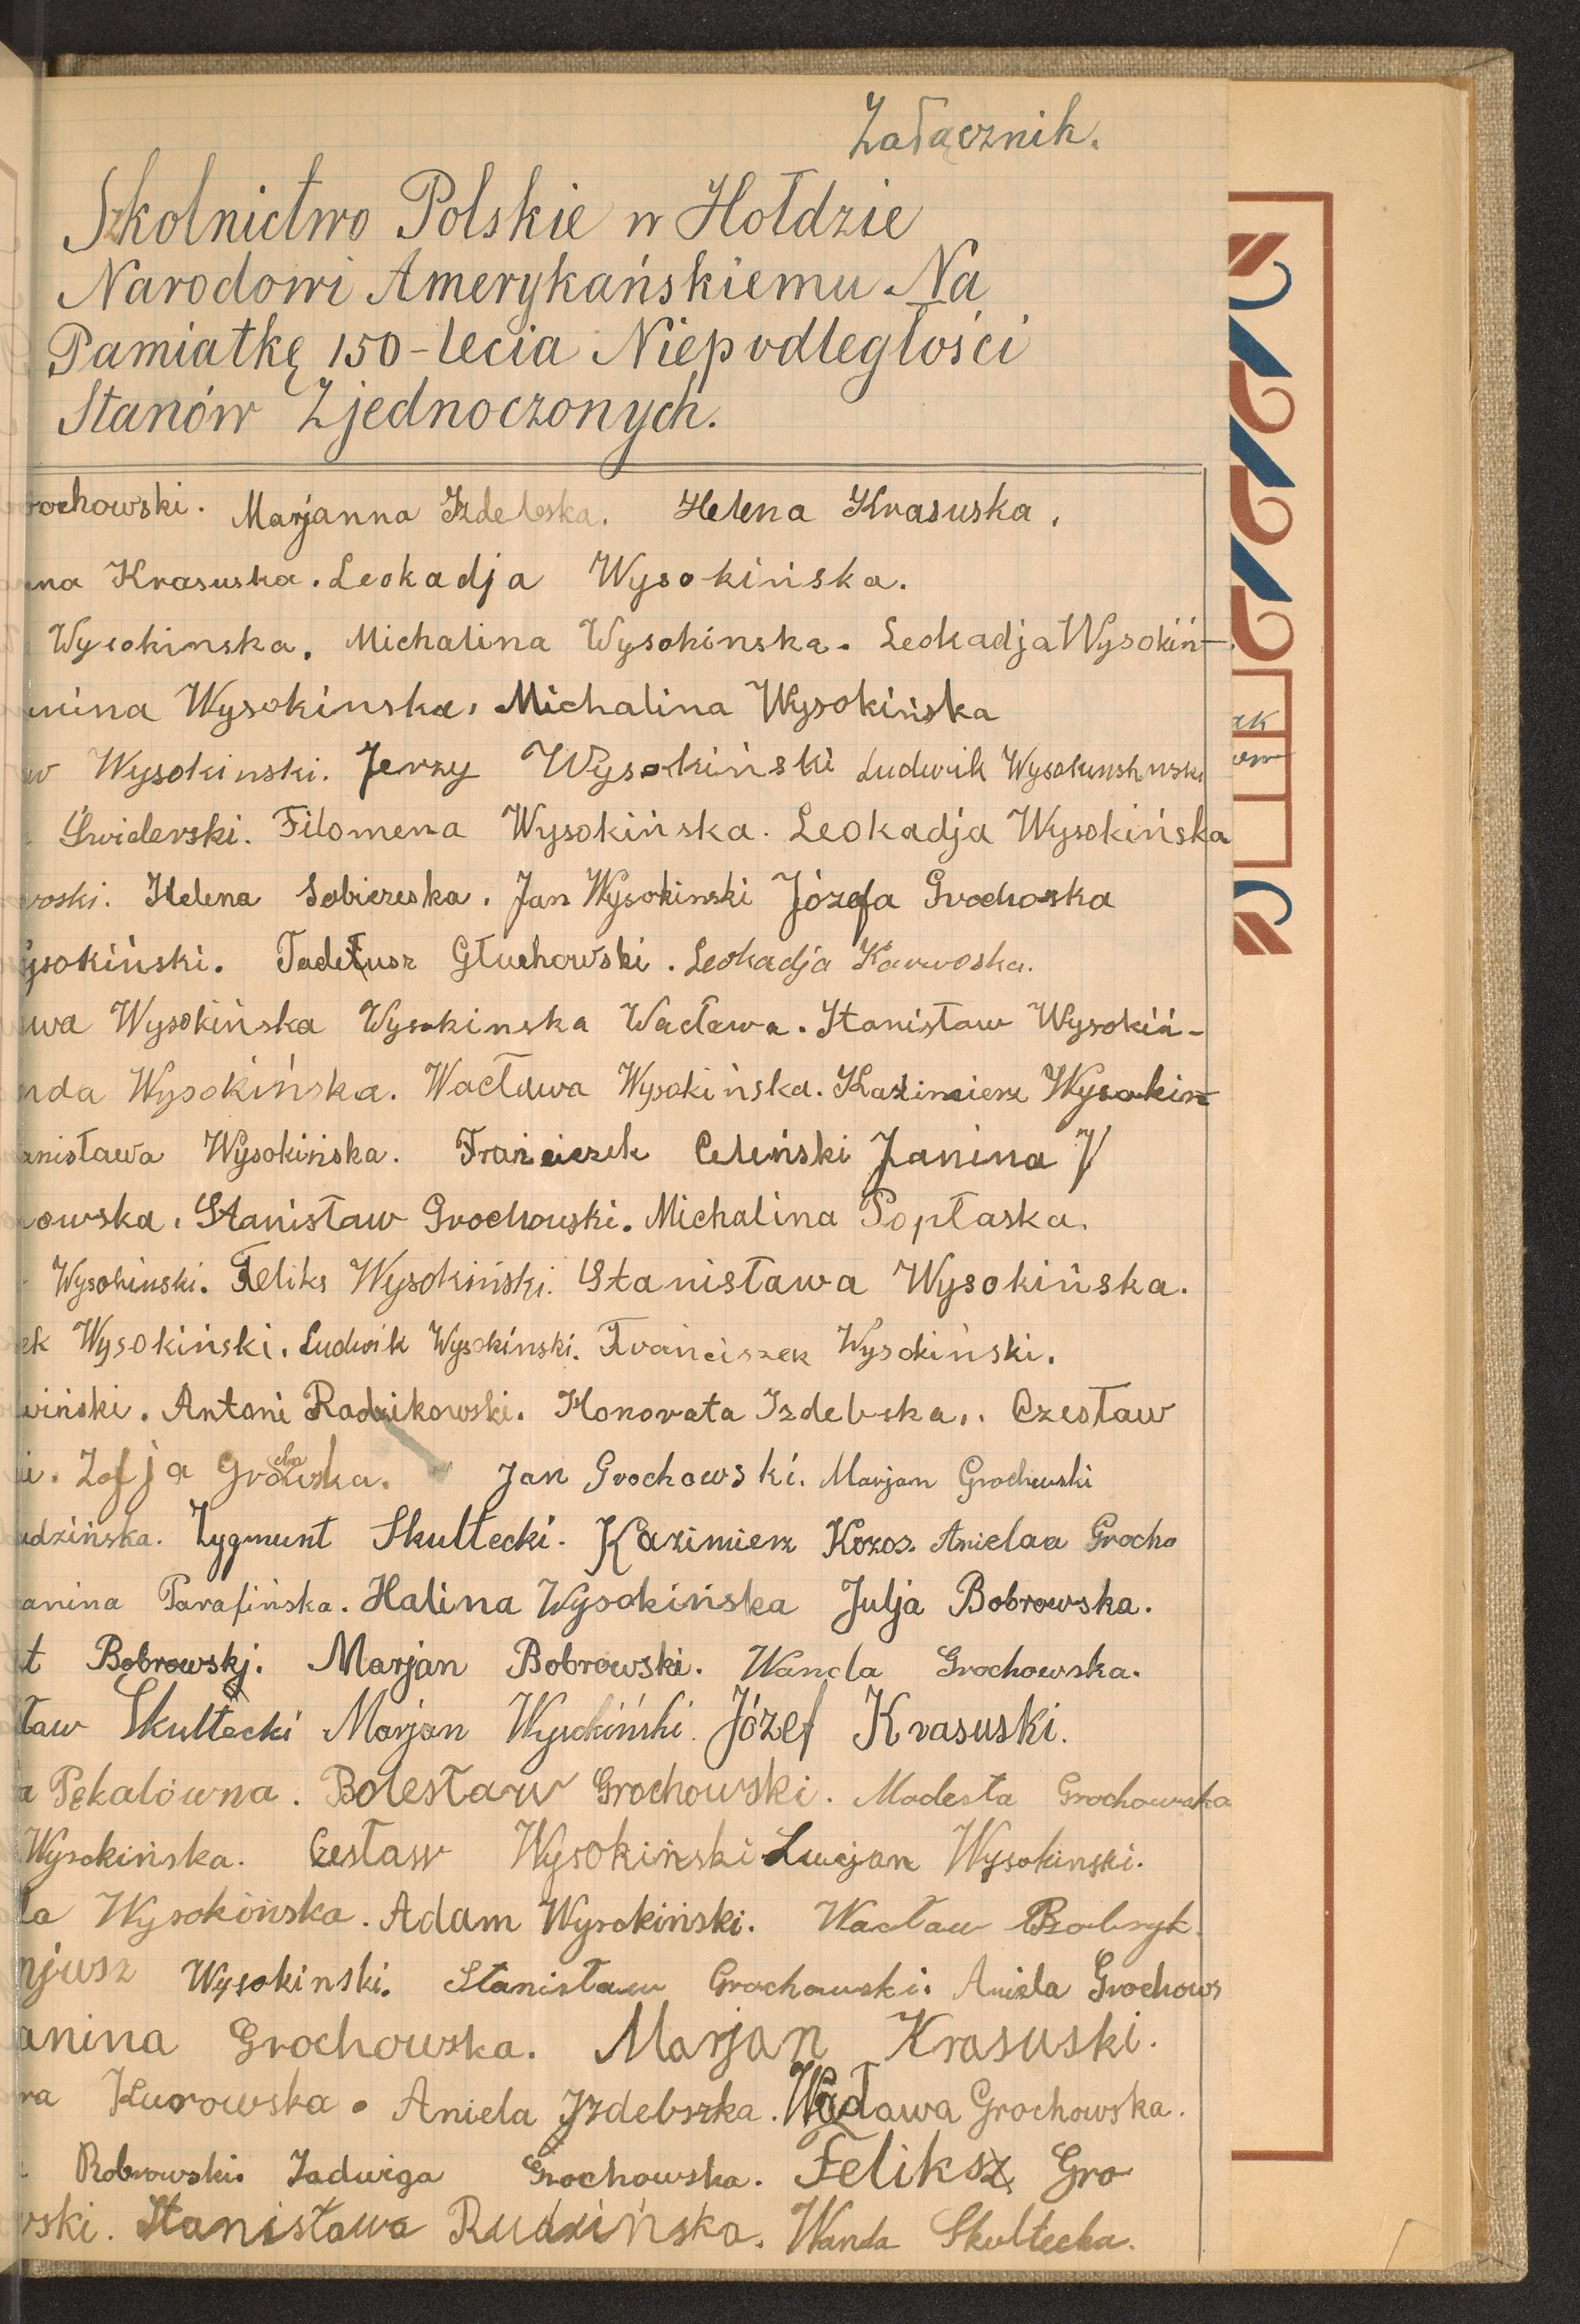 Załącznik.
Szkolnictwo Polskie w Hołdzie
Narodowi Amerykańskiemu Na
Pamiatkę 150-lecia Niepodległości
Stanów Zjednoczonych.
rochowski. Marjanna Izdebska. Helena Krasuska.
na Krasuska. Leokadja Wysokińska.
Wysokinska. Michalina Wysokinska. Leokadja Wysokiń-
nina Wysokinska, Michalina Wysokińska
w Wysokinski. Jerzy Wysokiński Ludwik
Świderski. Filomena Wysokińska. Leokadja Wysokińska
roski. Helena Sobiereska. Jan Wysokinski Józefa Grochoska
ysokiński. Tadeusz Głuchowski. Leokadja Karwoska.
wa Wysokińska Wysokinska Wacława. Stanisław Wysokiń-
nda Wysokińska. Wacława Wysokińska. Kazimierz Wysokiń
anisława Wysokińska. Franciszek Celiński Janina W
owska. Stanisław Grochowski. Michalina Popłaska.
Wysokinski. Feliks Wysokiński. Stanisława Wysokińska.
ek Wysokiński. Ludwik Wysokínski. Franciszek Wysokiński.
wiński. Antoni Radzikowski. Honorata Izdebska,. Czesław
i. Zofja Grochowska. Jan Grochowski. Marjan Grochowski
udzińska. Zygmunt Skułtecki. Kazimierz Kozos. Anielaa Grocho
anina Parafińska. Halina Wysokińska Julja Bobrowska.
t Bobrowskj. Marjan Bobrowski. Wanda Grochowska.
ław Skułtecki Marjan Wysokiński. Józef Krasuski.
a Pękalówna. Bolesław Grochowski. Modesta Grochowska
Wysokińska. Czesław Wysokiński Lucjan Wysokinski.
la Wysokińska. Adam Wysokiński. Wacław
njusz Wysokinski. Stanisław Grochowski. Aniela Grochows
anina Grochowska. Marjan Krasuski.
ra Kurowska. Aniela Jzdebszka. Wacława Grochowska.
Bobrowski. Jadwiga Grochowska. Feliksz Gro
wski. Stanisława Rudzińska. Wanda Skultecka.